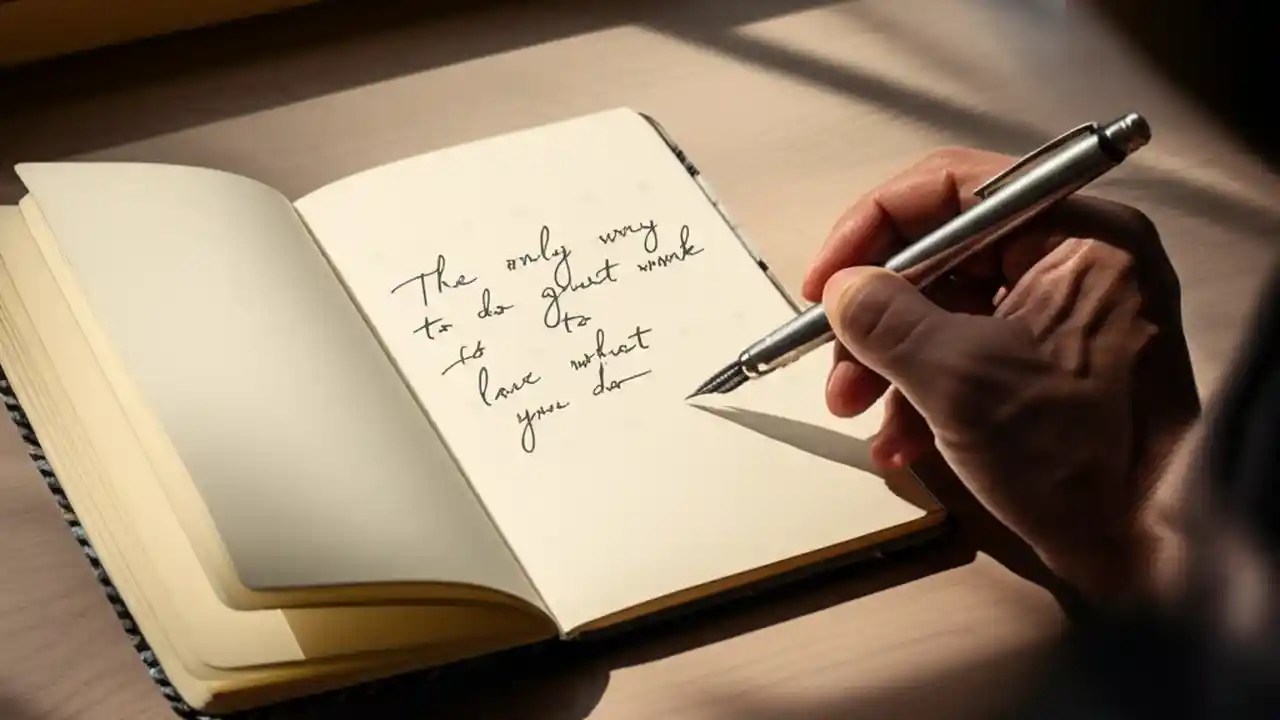 The only way
to do great work
is to
love what
you do